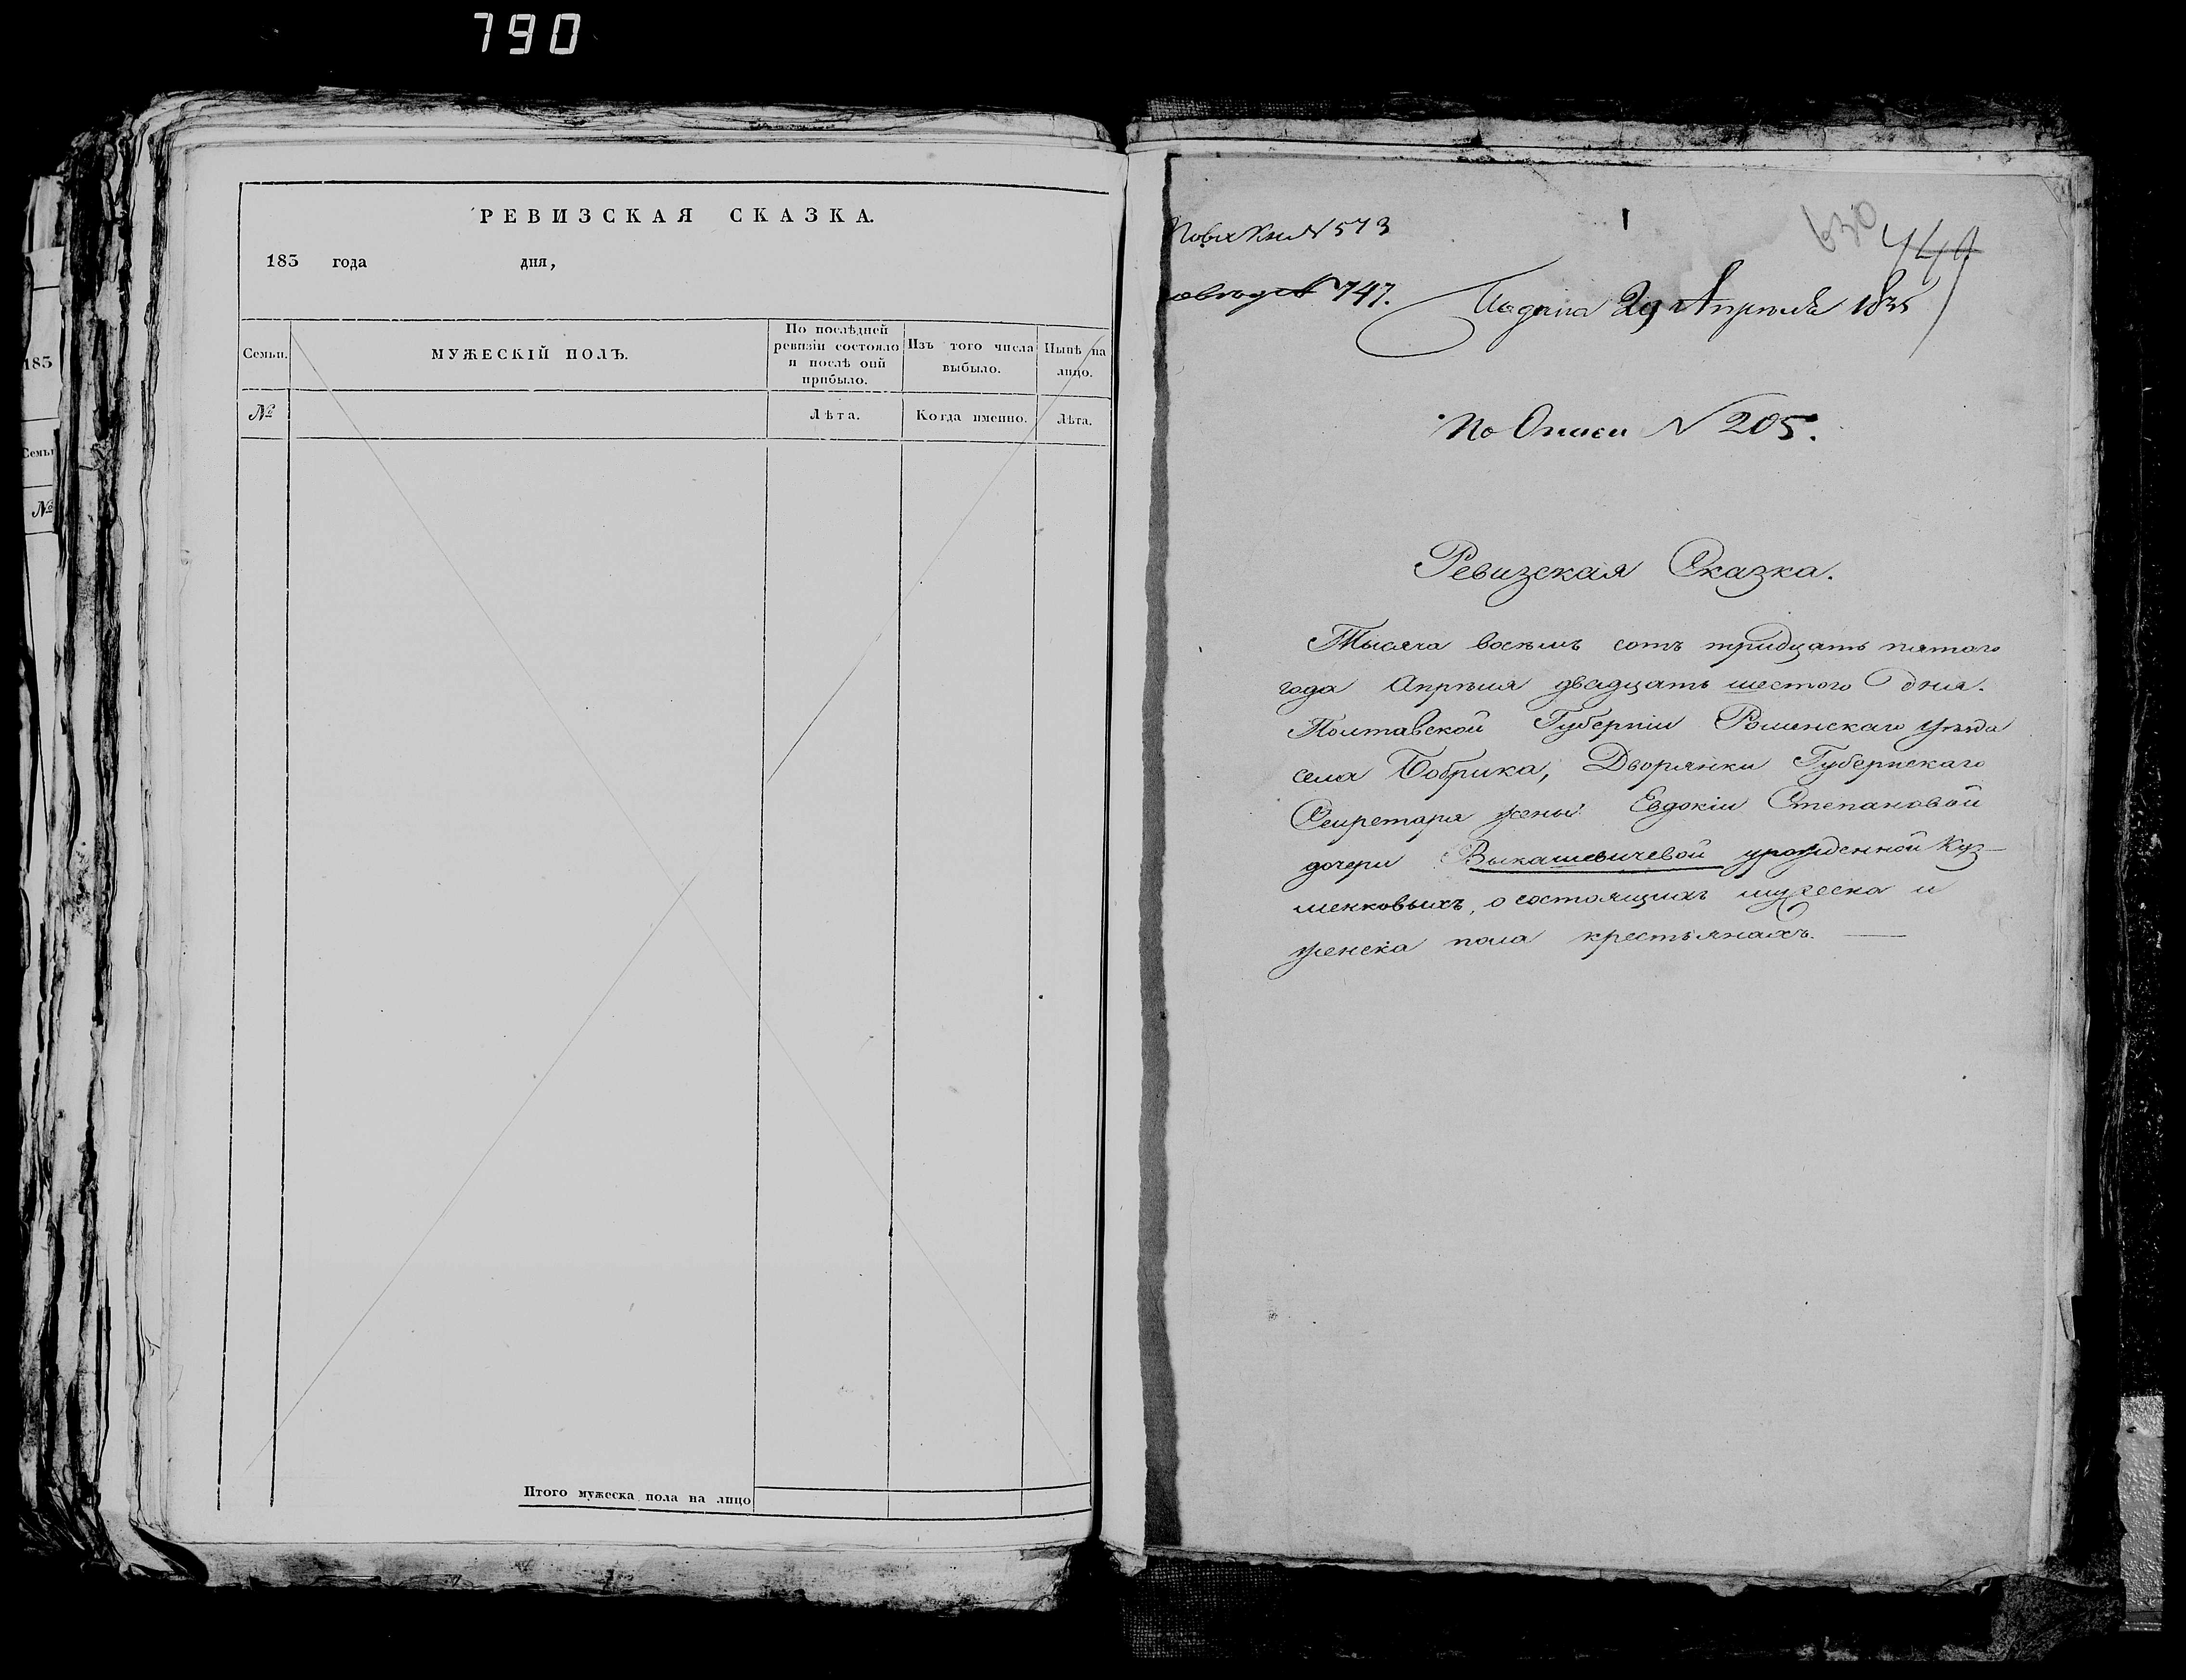 790
РЕВИЗСКАЯ СКАЗКА.
183 года дня,
Семьи.
МУЖЕСКІЙ ПОЛЪ.
По послѣдней ревизіи состояло и послѣ оной прибыло.
Изъ того числа выбыло.
Нынѣ на лицо.
№
Лѣта.
Когда именно.
Лѣта.
Итого мужеска пола на лицо
183
Семьи
№
№ 573
630
№ 747.
29 Апрѣля 1835
По Описи № 205.
Ревизская Сказка.
Тысяча восемь сотъ тридцать пятого
года Апрѣля двадцать шестого дня.
Полтавской Губерніи Роменскаго уѣзда
села Бобрика, Дворянки Губернскаго
Секретаря жены Евдокіи Степановой
дочери Выкашевичевой урожденной Куз-
менковыхъ, о состоящихъ мужеска и
женска пола крестьянахъ.